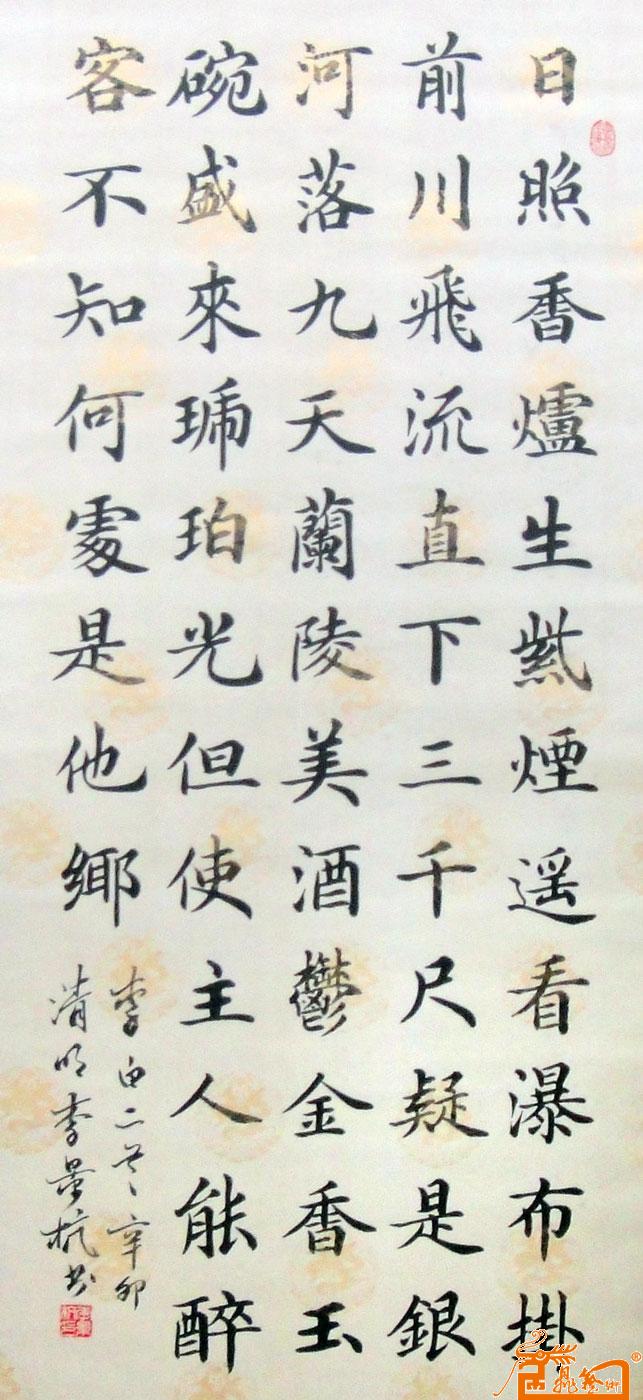 日照香爐生紫煙遥看瀑布掛
前川飛流直下三千尺疑是銀
河落九天蘭陵美酒鬱金香玉
碗盛來琥珀光但使主人能醉
客不知何處是他鄉
李白二首、辛卯
清明李景杭书